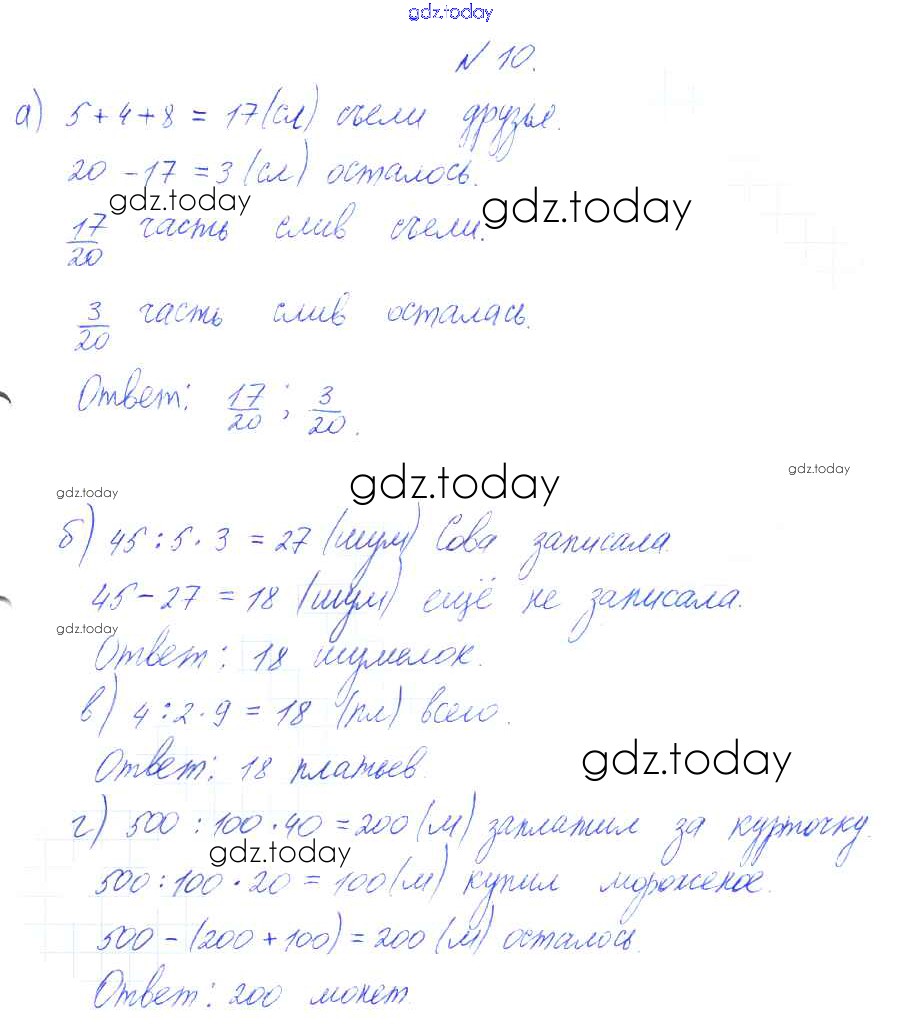 gdz.today
№ 10.
а) 5 + 4 + 8 = 17 (сл) съели друзья.
20 - 17 = 3 (сл) осталось.
gdz.today
gdz.today
17/20 часть слив съели.
3/20 часть слив осталась.
Ответ: 17/20; 3/20.
gdz.today
gdz.today
gdz.today
б) 45 : 5 · 3 = 27 (шум) Сова записала.
45 - 27 = 18 (шум) ещё не записала.
gdz.today
Ответ: 18 шумелок.
в) 4 : 2 · 9 = 18 (пл) всего.
Ответ: 18 платьев.
gdz.today
г) 500 : 100 · 40 = 200 (м) заплатил за курточку.
gdz.today
500 : 100 · 20 = 100 (м) купил мороженое.
500 - (200 + 100) = 200 (м) осталось.
Ответ: 200 монет